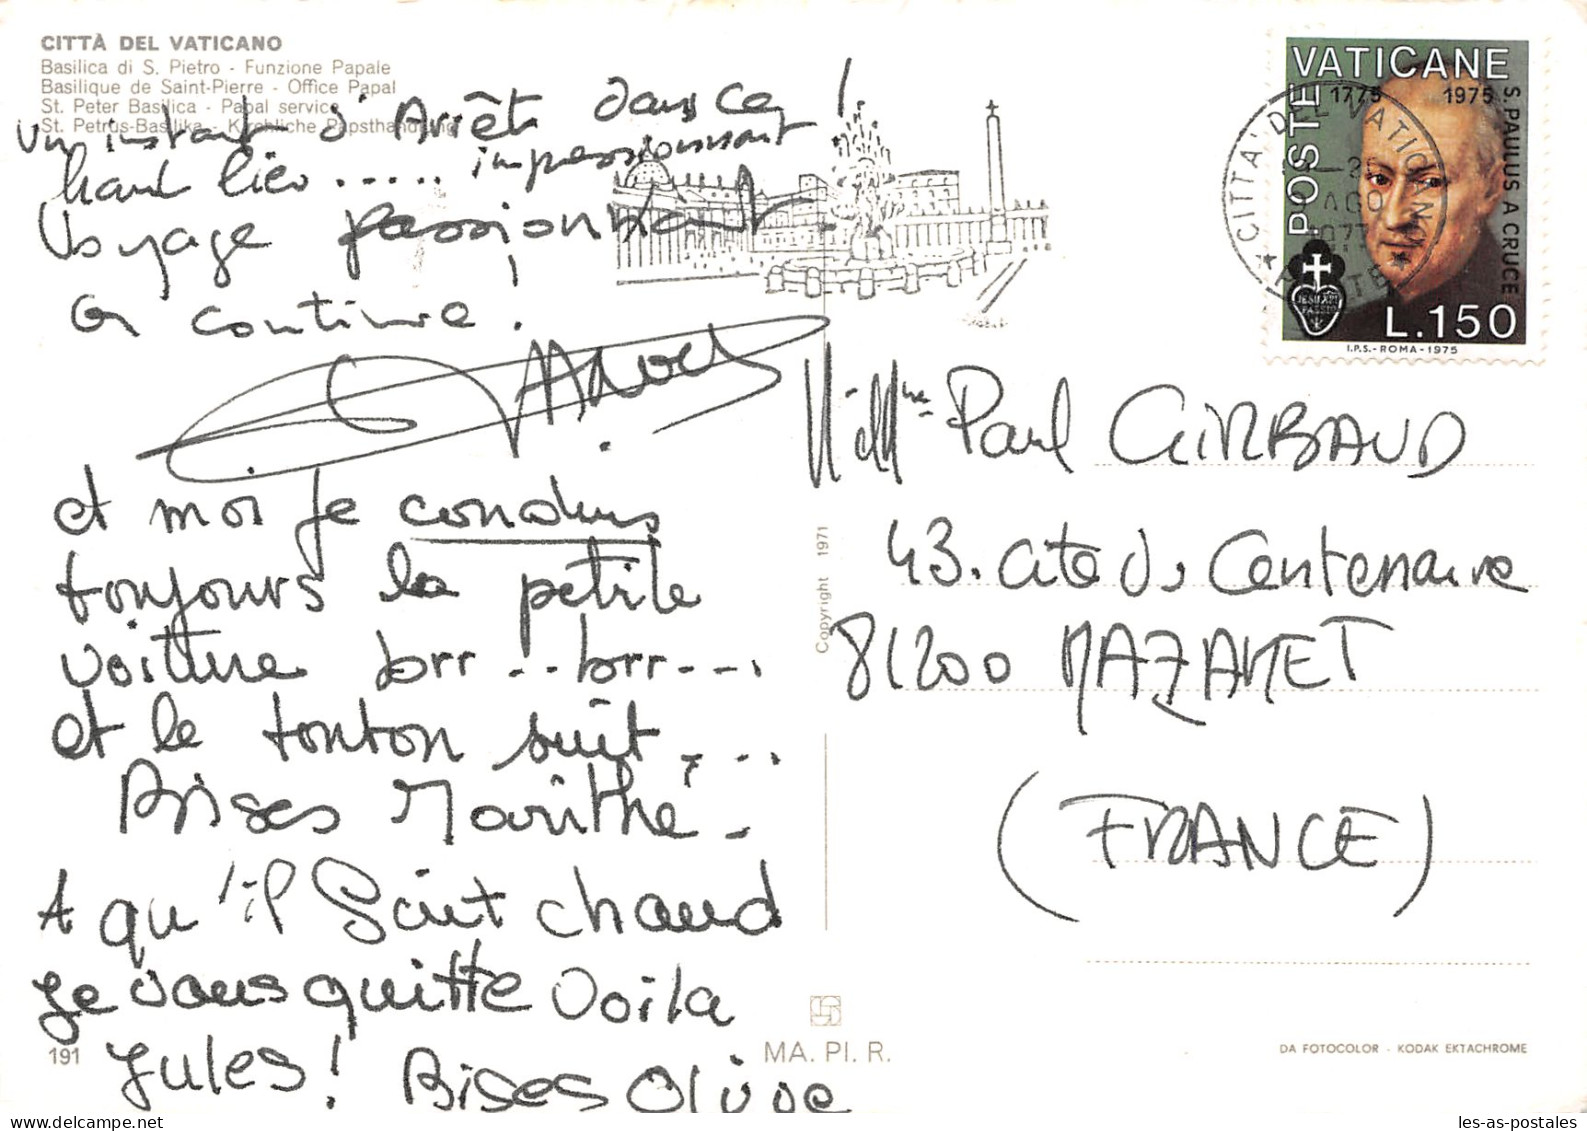 CITTÀ DEL VATICANO
Basilica di S. Pietro - Funzione Papale
Basilique de Saint-Pierre - Office Papal
St. Peter Basilica - Papal service
St. Petrus-Basilika - Kirchliche Papsthandlung
un instant d'Arrêt dans ce
haut lieu ..... impressionnant !
Voyage passionnant
on continue !
et moi je conduis
toujours la petite
voiture brr...brr---,
et le tonton suit, ...
Bises Marithé -
A qu'il Saint chaud
Je vous quitte Voila
Jules! Bises Olive
191
VATICANE
POSTE
1775 1975
S. PAULUS A CRUCE
JESU XPI
PASSIO
L.150
I.P.S.-ROMA-1975
CITTA' DEL VATICANO
POSTE
AGO
M. et Mme Paul GIRBAUD
43. cité du Centenaire
81200 MAZAMET
(FRANCE)
Copyright 1971
MA. PI. R.
DA FOTOCOLOR - KODAK EKTACHROME
les-as-postales